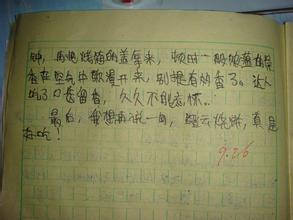 钟，再把烧箱的盖拿来，顿时一股
香在空气中散漫开来，别提有多香了。让人
吃了口齿留香，久久不能忘怀。
最后，我想再说一句，烧烤，真是
好吃！
9.26